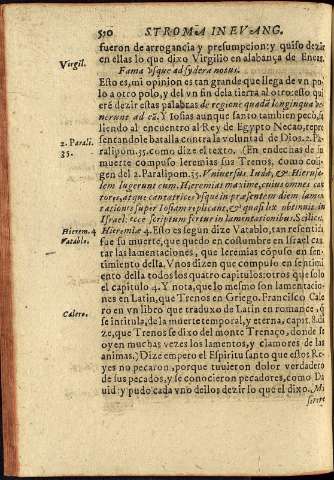 510 STROMA IN EVANG.
fueron de arrogancia y presumpcion: y quiso dezir
en ellas lo que dixo Virgilio en alabança de Eneas.
Virgil.
Fama vsque ad sydera notus.
Esto es, mi opinion es tan grande que llega de vn po
lo a otro polo, y del vn fin dela tierra al otro: esto qui
ere dezir estas palabras de regione quadã longinqua ve
nerunt ad
Y Iosias aunque santo tambien pecò, sa
liendo al encuentro al Rey de Egypto Necao, repre
sentandole batalla contra la voluntad de Dios. 2. Pa
2. Parali.
35.
ralipom. 35. como dize el texto. (En endechas de su
muerte compuso Ieremias sus Trenos, como coli-
gen del 2. Paralipom. 35. Vniuersus Iuda, & Hierusa-
lem lugerunt eum. Hieremias maxime, cuius omnes can
tores, atque cantatrices vsque in præsentem diem lamen
tationes super Iosiam replicant, & quasi lex obtinuit in
Israel: ecce scriptum fertur in lamentationibus. Scilicet
Hierem. 4
Vatablo.
Hieremiæ 4. Esto es segun dize Vatablo, tan resentida
fue su muerte, que quedo en costumbre en Israel can
tar las lamentaciones, que Ieremias cõpuso en sen-
timiento della. Vnos dizen que compuso en sentimi
ento della todos los quatro capitulos: otros que solo
el capitulo 4. Y nota, que lo mesmo son lamentacio-
nes en Latin, que Trenos en Griego. Francisco Cale
Calero.
ro en vn libro que traduxo de Latin en romance, q̃
se intitula, de la muerte temporal, y eterna, capit. 8. di
ze, que Trenos se dixo del monte Trenaço, donde se
oyen muchas vezes los lamentos, y clamores de las
animas.) Dize empero el Espiritu santo que estos Re
yes no pecaron, porque tuuieron dolor verdadero
de sus pecados, y se conocieron pecadores, como Da
uid: y pudo cada vno dellos dezir lo que el dixo. Mi
serere